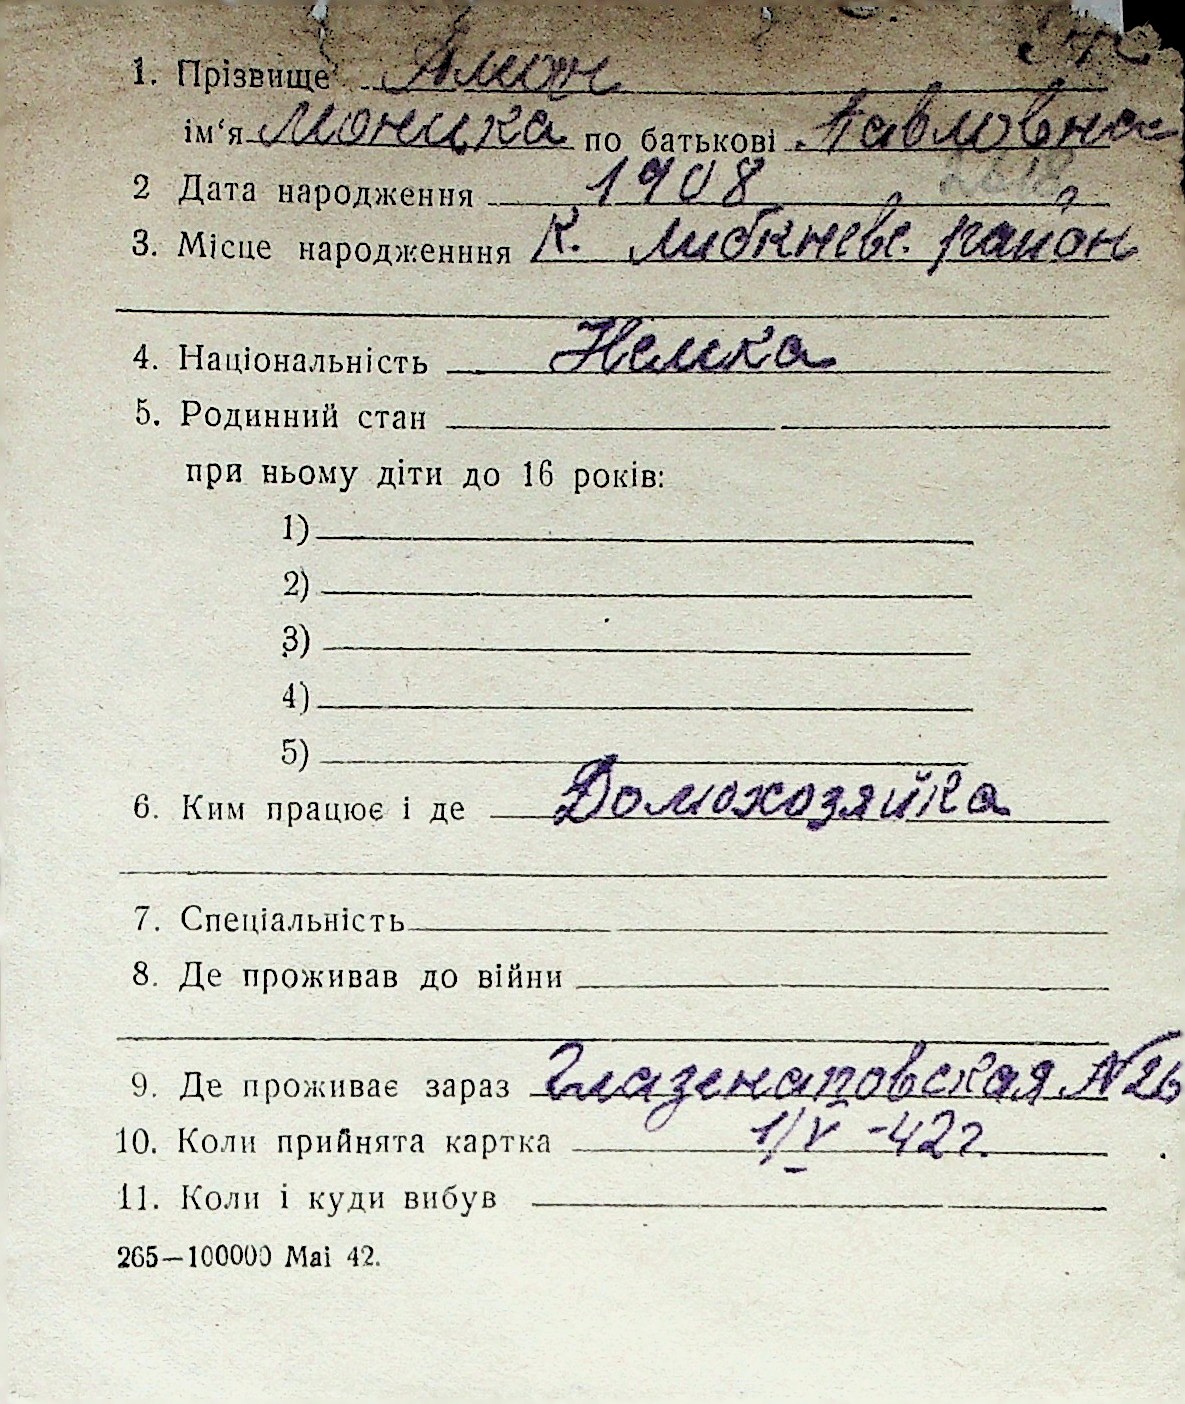 1. Прізвище Амон
ім‘я Моника по батькові Павловна
2 Дата народження 1908
3. Місце народженння К. Либкневс. район
4. Національність Немка
5. Родинний стан
при ньому діти до 16 років:
1)
2)
3)
4)
5)
6. Ким працює і де Домохозяйка
7. Спеціальність
8. Де проживав до війни
9. Де проживає зараз Глазенаповская №26
10. Коли прийнята картка 1/V -42г.
11. Коли і куди вибув
265—100000 Mai 42.